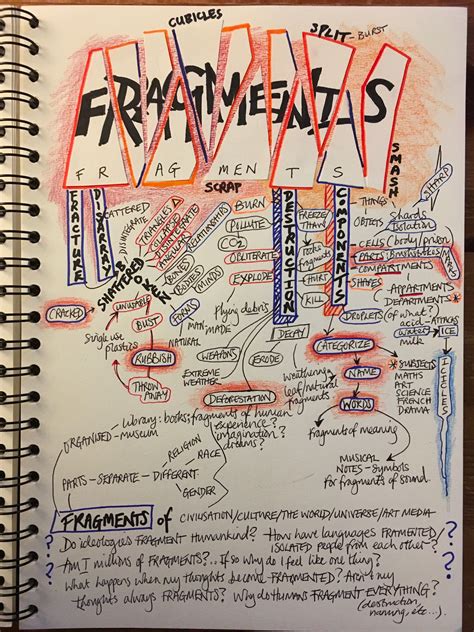 CUBICLES
SPLIT-BURST
FRAGMENTS
FRAGMENTS
SCRAP
SMASH
SHARP
FRACTURE
DISARRAY
SCATTERED
DISINTEGRATE
SHATTERED
BROKEN
TRIANGLES
COLLAPSE
DISINTEGRATE
ANGULAR
BONES
BODIES
RELATIONSHIPS
MINDS
FORMS
BURN
POLLUTE
CO2
OBLITERATE
EXPLODE
DESTRUCTION
FREEZE/
THAW
rocks
fragments
HURT
KILL
COMPONENTS
THINGS
OBJECTS
Shards
Isolation
CELLS (body/prison
PARTS:
COMPARTMENTS
SHAPES
APPARTMENTS
DEPARTMENTS*
DROPLETS (of what?
acid-ATTACKS
water-ICE
milk
ICICLES
CRACKED
UNUSABLE
BUST
single use
plastics
RUBBISH
THROW
AWAY
NATURAL
MAN MADE
Flying debris
WEAPONS
EXTREME
WEATHER
ERODE
DECAY
weathering
leaf/natural
fragments
DEFORESTATION
CATEGORIZE
NAME
WORDS
* SUBJECTS
MATHS
ART
SCIENCE
FRENCH
DRAMA
Fragments of meaning
MUSICAL
NOTES-Symbols
for fragments of sound.
Library: books: fragments of human
experience?
imagination?
dreams?
ORGANISED-museum
PARTS-SEPARATE-DIFFERENT
RELIGION
RACE
GENDER
FRAGMENTS of CIVILISATION/CULTURE/THE WORLD/UNIVERSE/ART MEDIA
Do ideologies FRAGMENT Humankind? How have languages FRAMENTED/
ISOLATED people from each other?
Am I millions of FRAGMENTS?.. If so why do I feel like one thing?
What happens when my thoughts become FRAMENTED? Aren't my
thoughts always FRAGMENTS? Why do HUMANS FRAGMENT EVERYTHING?
(destruction,
naming, etc...).